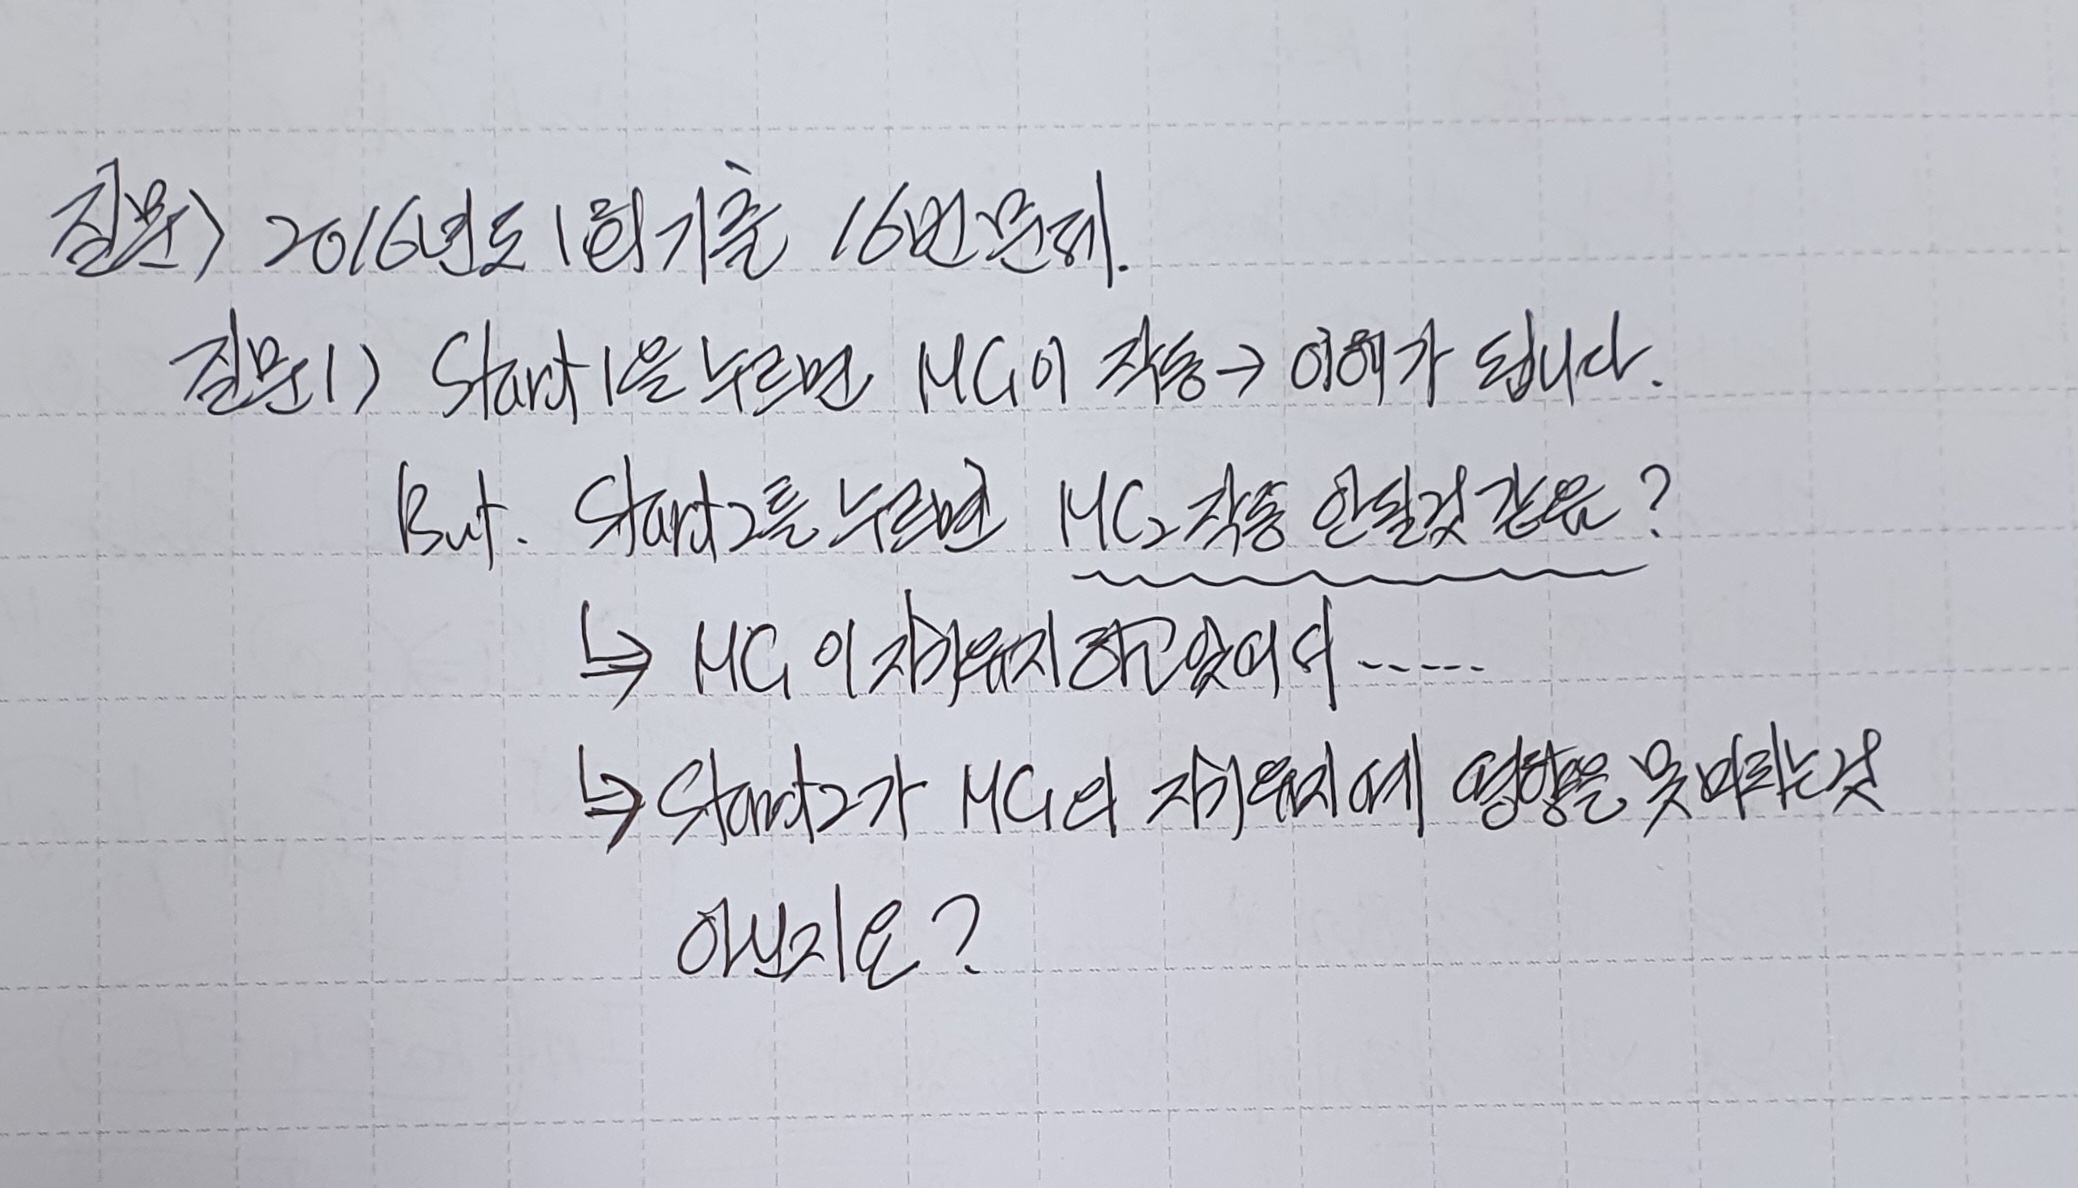 질문) 2016년도 1회 기출 16번 문제.
질문1) Start1을 누르면 MC1이 작동→ 이해가 됩니다.
But. Start2를 누르면 MC2 작동 안될것 같음?
↳ MC1이 자기유지 하고 있어서......
↳ Start2가 MC1의 자기유지에 영향을 못 미치는것
아닌지요?